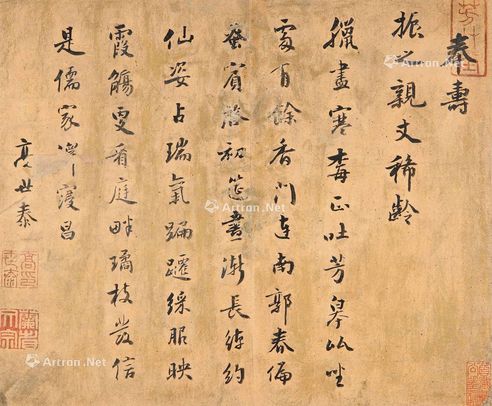 奉壽
振之親丈稀齡
臘盡寒梅正吐芳皋比坐
處有餘香門連南郭春偏
蚤賓啟初筵晝漸長綽約
仙姿占瑞氣蹁躚綵服映
霞觴更看庭畔璚枝發信
是儒家寖昌
高世泰
Artron.Net
Artron.Net
Artron.Net
Artron.Net